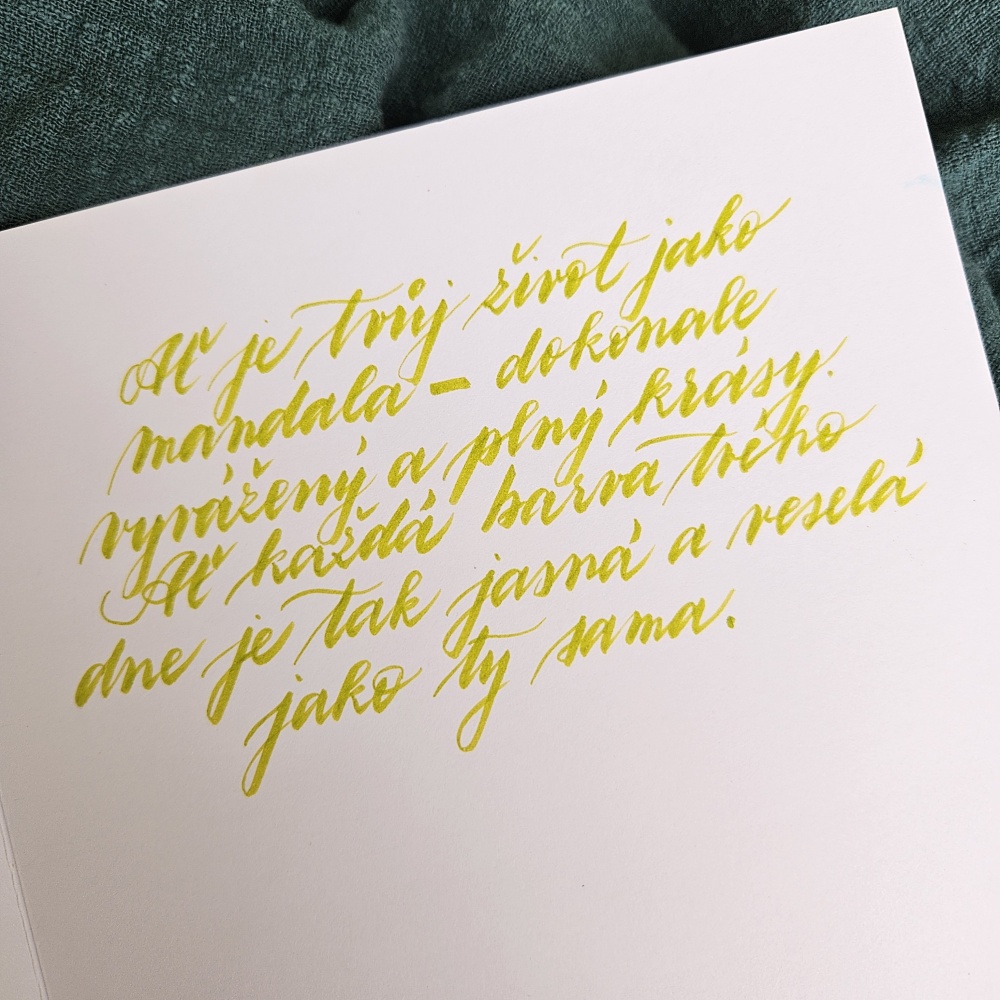 Ať je tvůj život jako
mandala – dokonale
vyvážený a plný krásy.
Ať každá barva tvého
dne je tak jasná a veselá
jako ty sama.